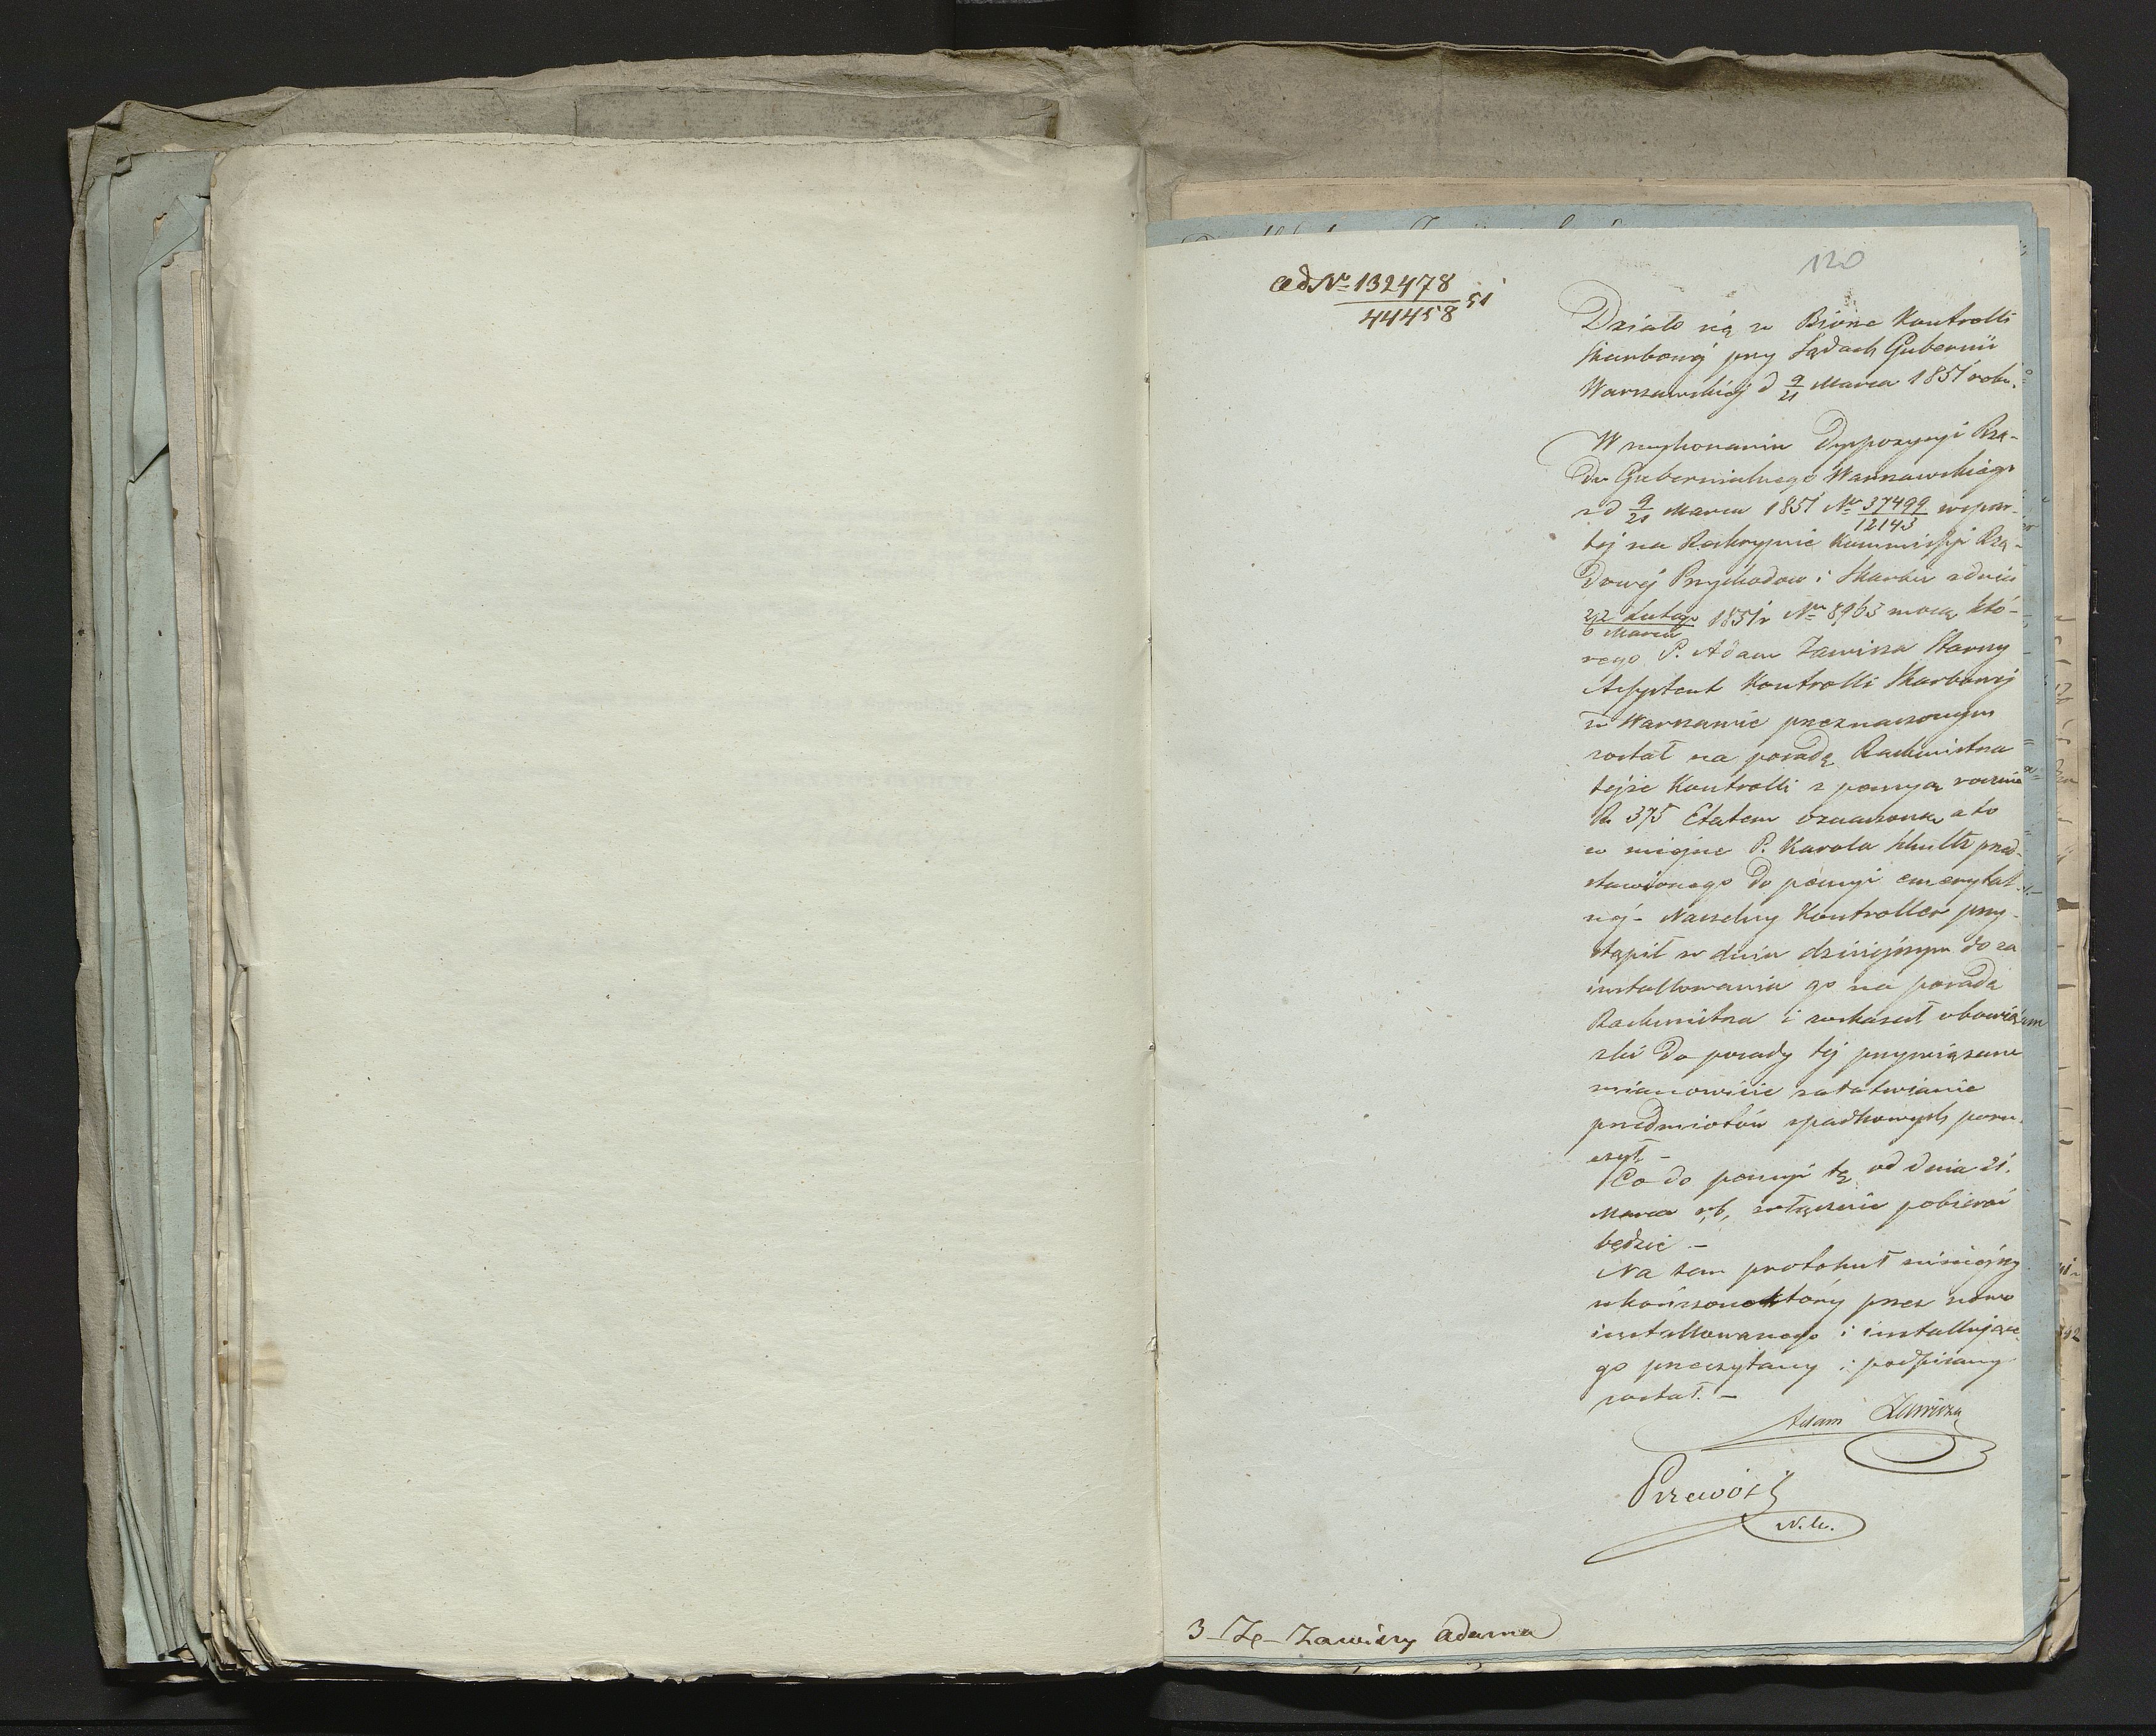 120
ad Nr 132478/44458 51
Działo się w Biórze Kontrolli
Skarbowéj przy Sądach Gubernii
Warszawskiéj d 9/21 Marca 1851 roku.
W wykonaniu Dyspozycyi Rzą-
du Gubernialnego Warszawskiego
z d 9/21 Marca 1851 Nr 37499/12143 wspar-
tej na Reskrypcie Kommissyi Rzą-
dowéj Przychodow i Skarbu z dnia
22 Lutego/6 Marca 1851 r Nr 8963 mocą któ-
rego P. Adam Zawisza Starszy
Assystent Kontrolli Skarbowej
w Warszawie przeznaczonym
został na posadę Rachmistrza
tejże Kontrolli z pensyą roczną
Rs 375 Etatem oznaczoną a to
w miejsce P. Karola przed-
stawionego do pensyi emerytal-
néj - Naczelny Kontroller przy-
stąpił w dniu dzisiejszym do za
installowania go na posadę
Rachmistrza i wskazał obowią
zki do posady téj przywiązane
mianowicie załatwianie
przedmiotów spadkowych poru-
czył. -
Co do pensyi tę od dnia 21.
Marca r,b, włącznie pobierać
będzie -
Na tem protokuł niniejszy
ukończono który przez nowo
installowanego i installujące-
go przeczytany i podpisany
został. -
Adam Zawisza
N.K.
3 - Ze - Zawiszy Adama